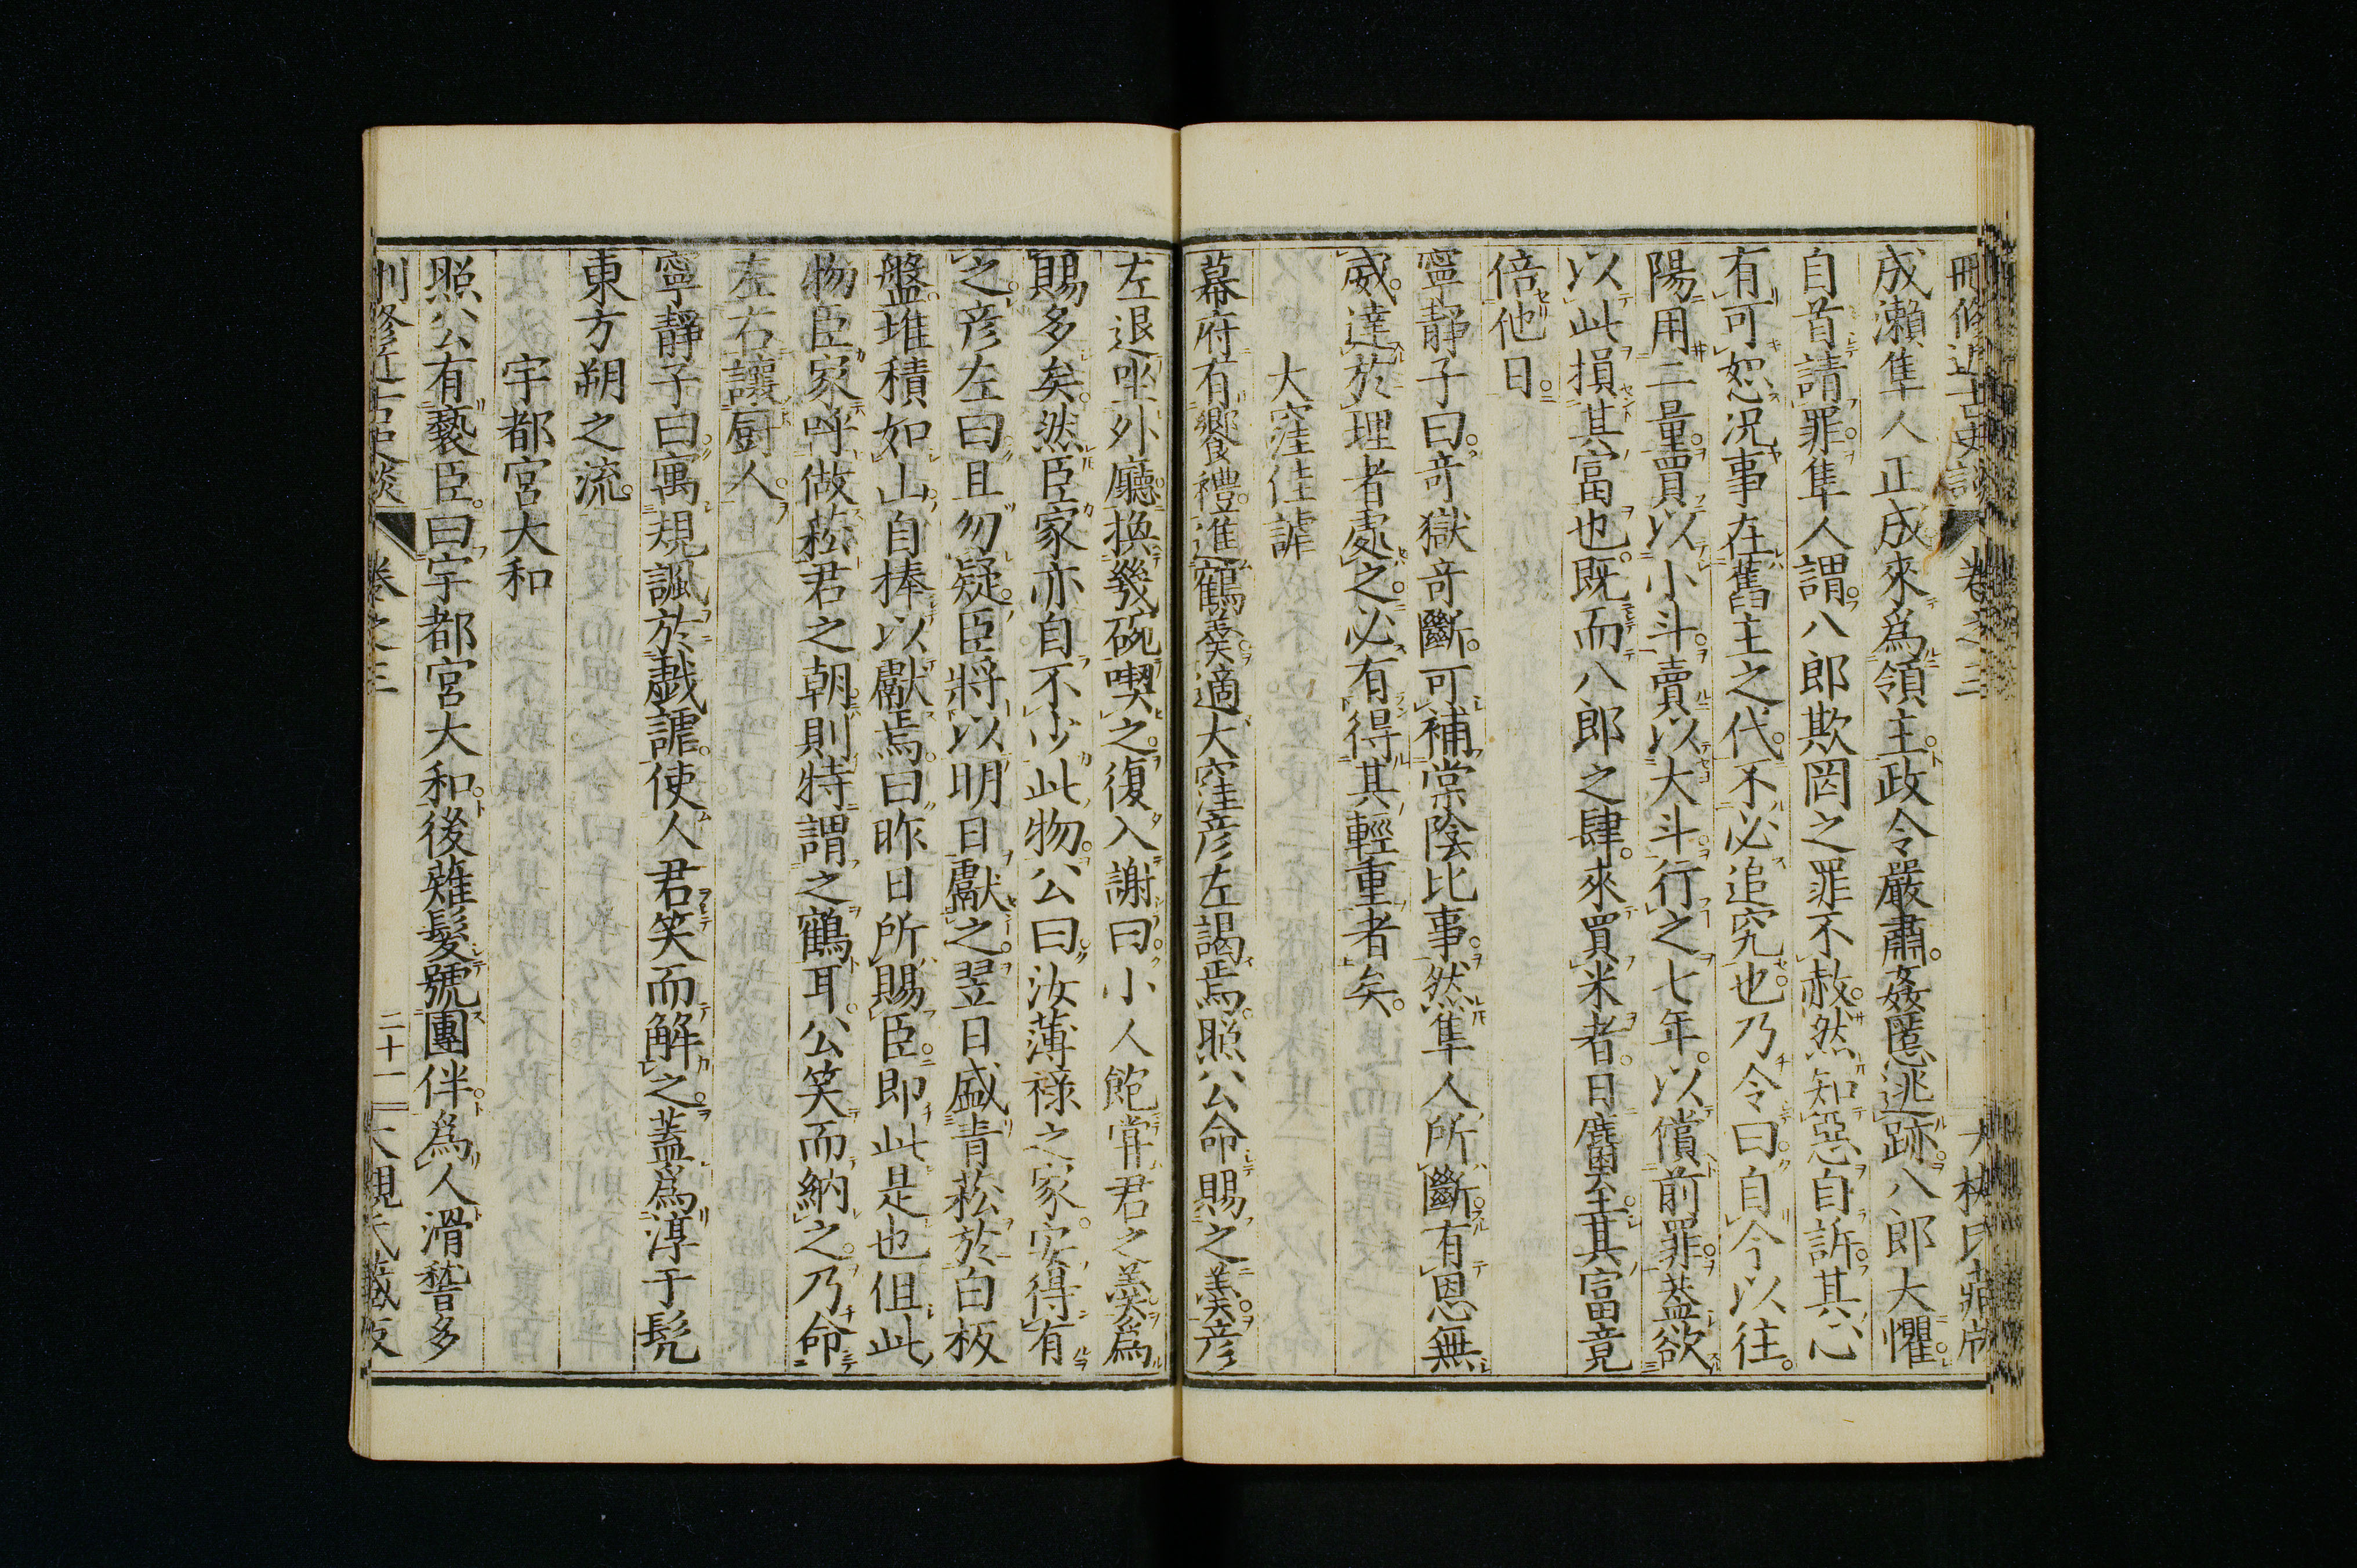 成瀬隼人正成來為領主政令嚴肅姦慝逃跡八郎大懼
自首請罪隼人謂八郎欺罔之罪不赦然知惡自訴其心
有可恕況事在舊主之代不必追究也乃令曰自今以往
陽用二量買以小斗賣以大斗行之七年以償前罪葢欲
以此損其富也既而八郎之肆來買米者日麕至其富竟
倍他日
寧靜子曰奇獄奇斷可補棠陰比事然隼人所斷有恩無
威達於理者處之必有得其輕重者矣
大窪佳謔
幕府有饗禮進鶴羹適大窪彦左謁焉照公命賜之羹彦
左退坐外廳換幾碗喫之復入謝曰小人飽甞君之羹為
賜多矣然臣家亦自不少此物公曰汝薄祿之家安得有
之彦左曰且勿疑臣將以明日獻之翌日盛青菘於白板
盤堆積如山自捧以獻焉曰昨日所賜臣即此是也但此
物臣家呼做菘君之朝則特謂之鶴耳公笑而納之乃命
左右讓厨人
寧靜子曰寓規諷於戯謔使人君笑而解之葢為淳于髠
東方朔之流
宇都宮大和
照公有褻臣曰宇都宮大和後薙髮號團伴為人滑稽多
刪修近古史談 卷之三 二十一 大槻氏藏板